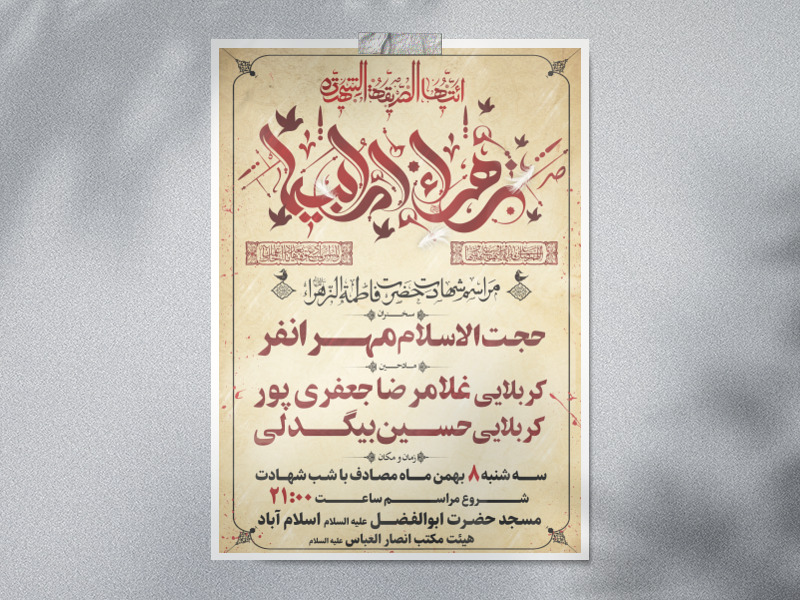 ایتها الصدیقة الشهیدة
مراسم شهادت حضرت فاطمة الزهرا
سخنران
حجت الاسلام مهر انفر
مداحین
کربلایی غلامرضا جعفری پور
کربلایی حسین بیگدلی
زمان و مکان
سه شنبه ۸ بهمن ماه مصادف با شب شهادت
شروع مراسم ساعت ۲۱:۰۰
مسجد حضرت ابوالفضل علیه السلام اسلام آباد
هیئت مکتب انصار العباس علیه السلام